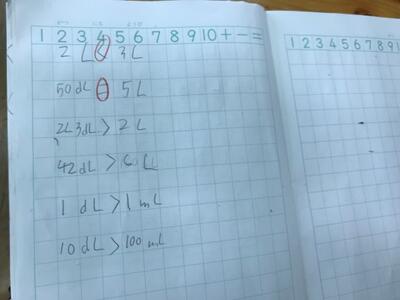 1 2 3 4 5 6 7 8 9 10 + - =
2 L < 3 L
50 dL = 5 L
2L 3dL > 2 L
42 dL > 6 L
1 dL > 1 mL
10 dL > 100 mL
1 2 3 4 5 6 7 8 9